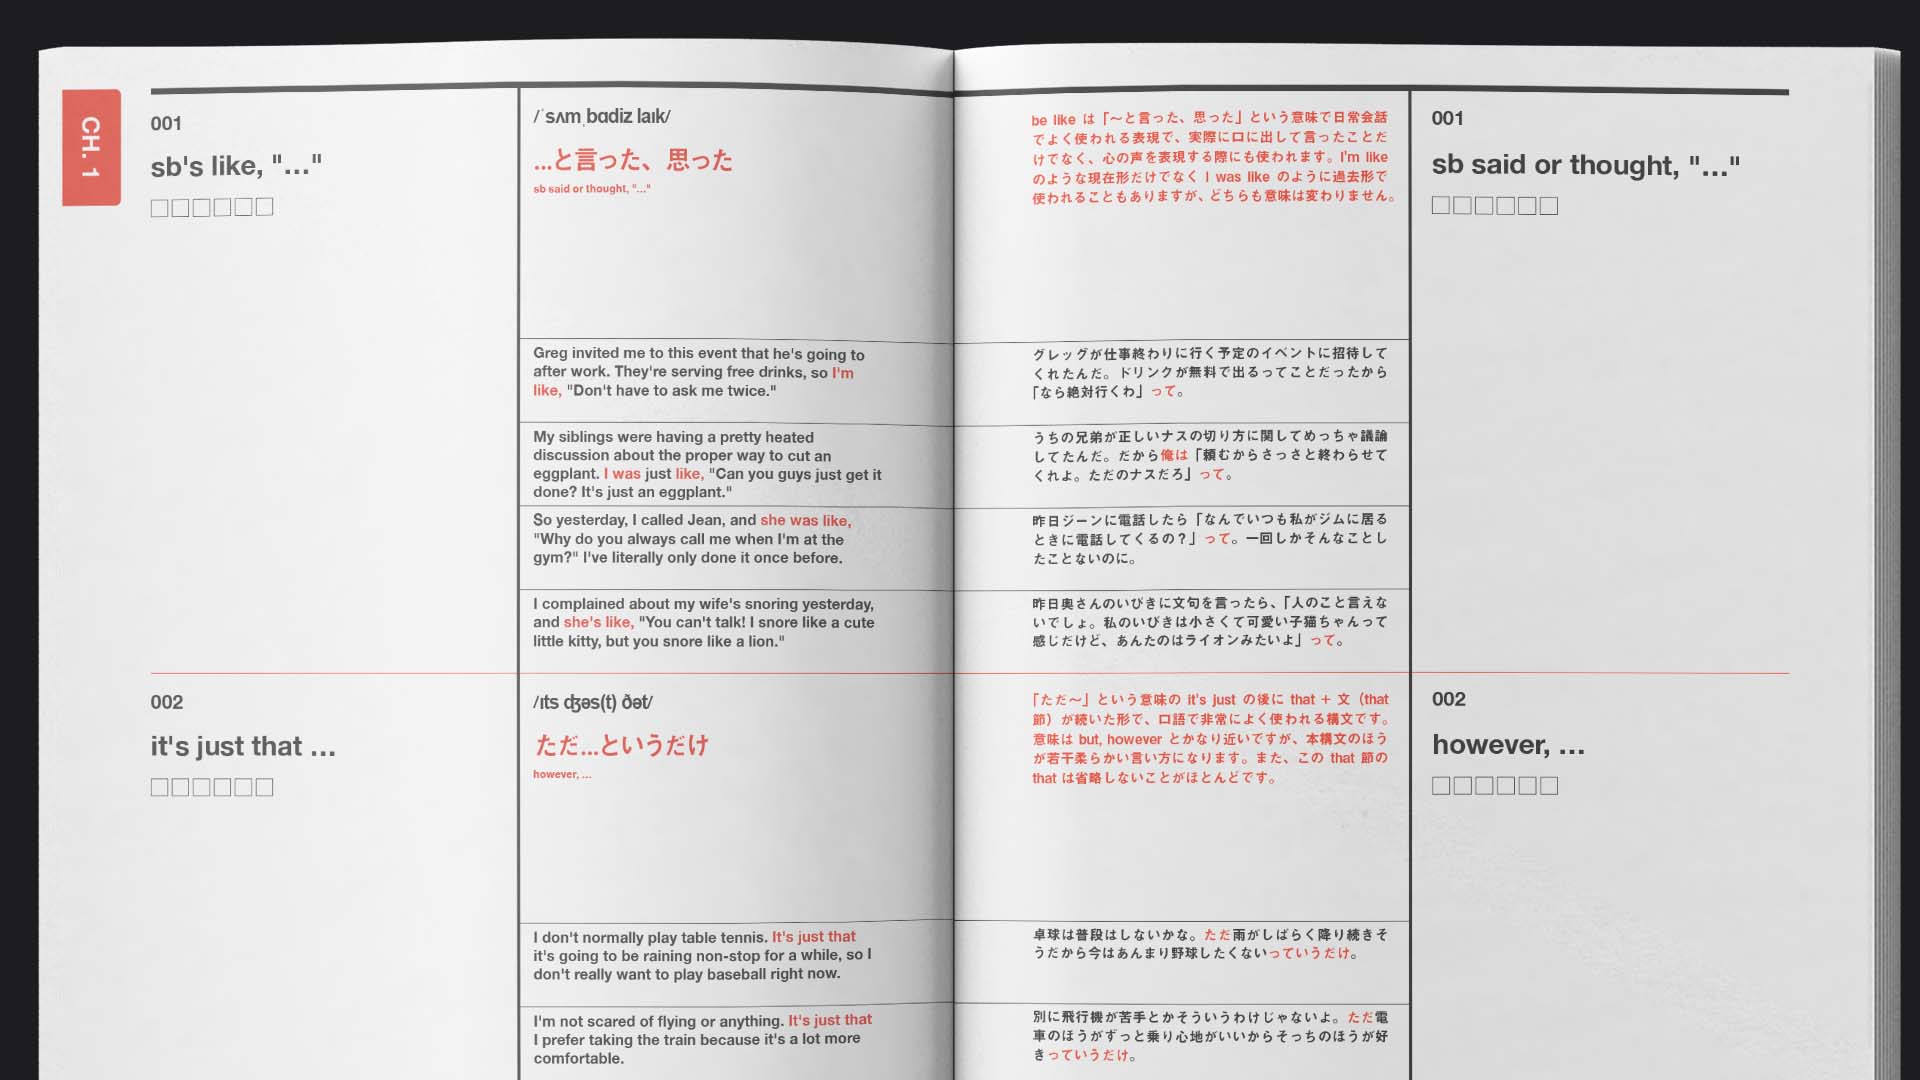 CH. 1
001
sb's like, "..."
/ˈsʌmˌbɑdiz laɪk/
...と言った、思った
sb said or thought, "..."
Greg invited me to this event that he's going to
after work. They're serving free drinks, so I'm
like, "Don't have to ask me twice."
My siblings were having a pretty heated
discussion about the proper way to cut an
eggplant. I was just like, "Can you guys just get it
done? It's just an eggplant."
So yesterday, I called Jean, and she was like,
"Why do you always call me when I'm at the
gym?" I've literally only done it once before.
I complained about my wife's snoring yesterday,
and she's like, "You can't talk! I snore like a cute
little kitty, but you snore like a lion."
002
it's just that ...
/ɪts ʤəs(t) ðət/
ただ...というだけ
however, ...
I don't normally play table tennis. It's just that
it's going to be raining non-stop for a while, so I
don't really want to play baseball right now.
I'm not scared of flying or anything. It's just that
I prefer taking the train because it's a lot more
comfortable.
be like は「〜と言った、思った」という意味で日常会話
でよく使われる表現で、実際に口に出して言ったことだ
けでなく、心の声を表現する際にも使われます。I'm like
のような現在形だけでなく I was like のように過去形で
使われることもありますが、どちらも意味は変わりません。
001
sb said or thought, "..."
グレッグが仕事終わりに行く予定のイベントに招待して
くれたんだ。ドリンクが無料で出るってことだったから
「なら絶対行くわ」って。
うちの兄弟が正しいナスの切り方に関してめっちゃ議論
してたんだ。だから俺は「頼むからさっさと終わらせて
くれよ。ただのナスだろ」って。
昨日ジーンに電話したら「なんでいつも私がジムに居る
ときに電話してくるの？」って。一回しかそんなことし
たことないのに。
昨日奥さんのいびきに文句を言ったら、「人のこと言えな
いでしょ。私のいびきは小さくて可愛い子猫ちゃんって
感じだけど、あんたのはライオンみたいよ」って。
「ただ〜」という意味の it's just の後に that + 文（that
節）が続いた形で、口語で非常によく使われる構文です。
意味は but, however とかなり近いですが、本構文のほう
が若干柔らかい言い方になります。また、この that 節の
that は省略しないことがほとんどです。
002
however, ...
卓球は普段はしないかな。ただ雨がしばらく降り続きそ
うだから今はあんまり野球したくないっていうだけ。
別に飛行機が苦手とかそういうわけじゃないよ。ただ電
車のほうがずっと乗り心地がいいからそっちのほうが好
きっていうだけ。